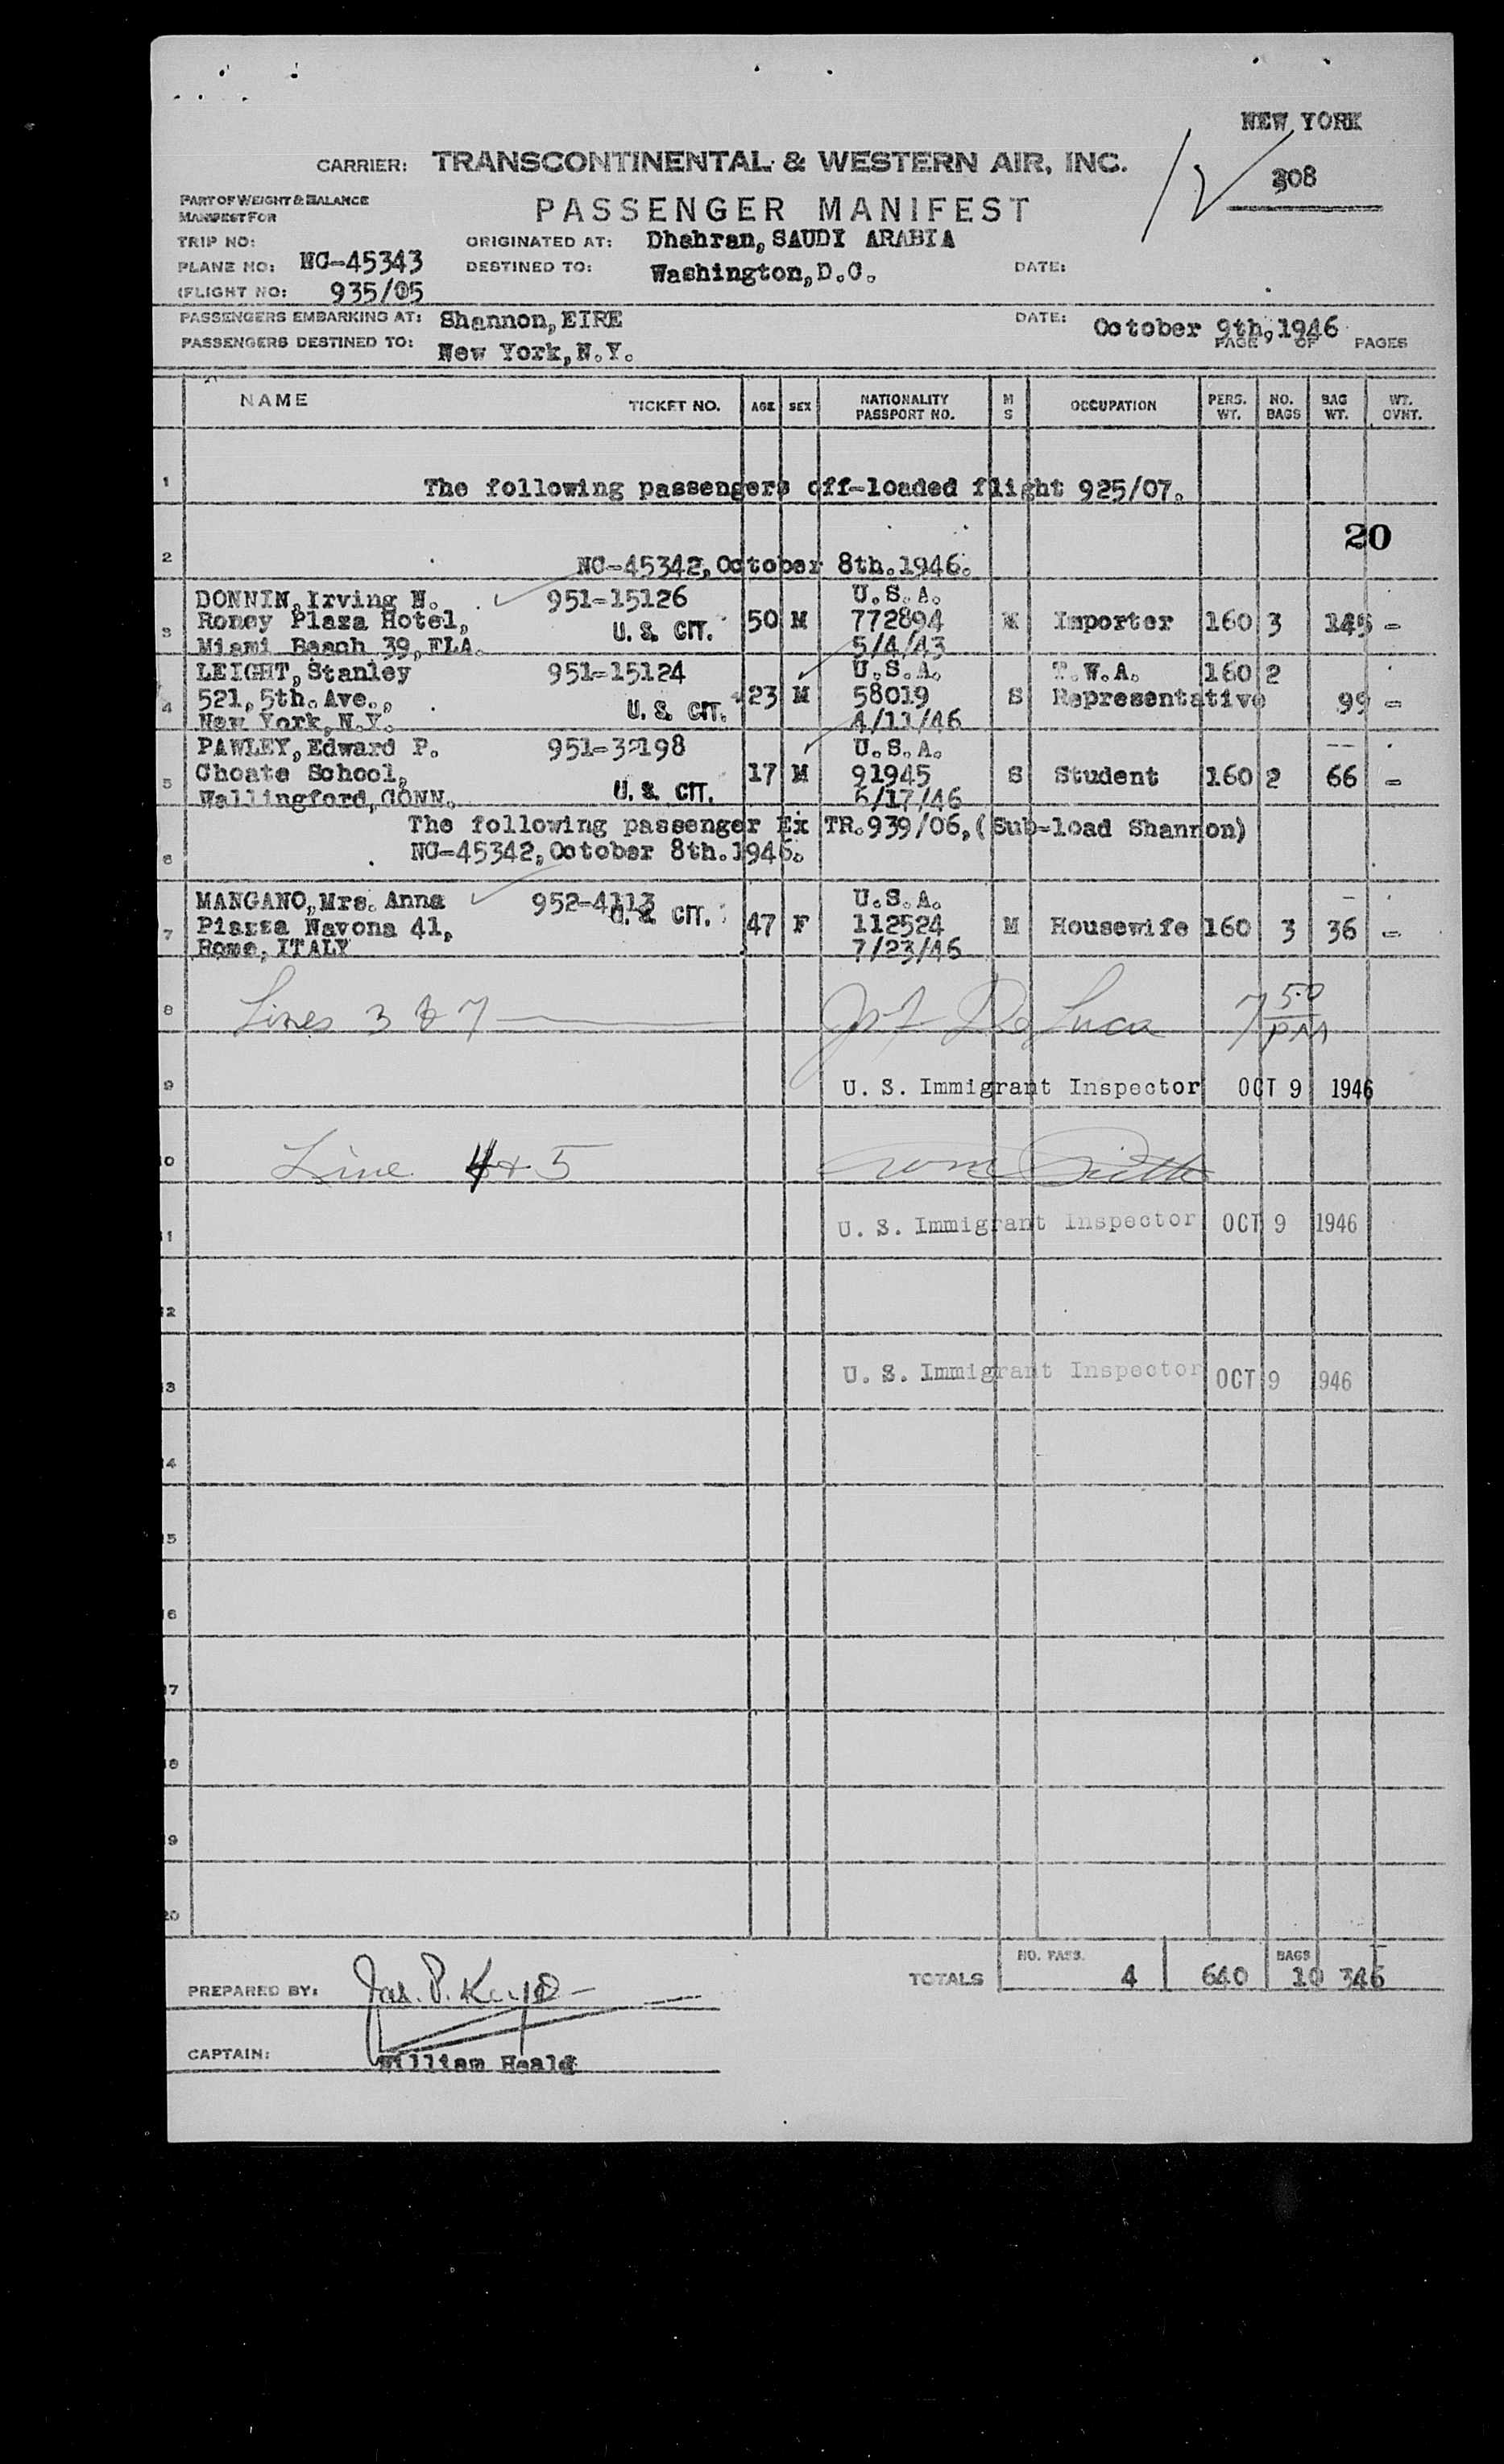 NEW YORK
CARRIER: TRANSCONTINENTAL & WESTERN AIR, INC.
308
PART OF WEIGHT & BALANCE
MANIFEST FOR
PASSENGER MANIFEST
TRIP NO:
ORIGINATED AT: Dhahran, SAUDI ARABIA
PLANE NO: NC-45343
DESTINED TO: Washington, D.C.
DATE:
FLIGHT NO: 935/05
PASSENGERS EMBARKING AT: Shannon, EIRE
DATE: October 9th, 1946
PASSENGERS DESTINED TO: New York, N.Y.
PAGE OF PAGES
NAME TICKET NO. AGE SEX NATIONALITY PASSPORT NO. M S OCCUPATION PERS. WT. NO. BAGS BAG WT. WT. OVNT.
1 The following passengers off-loaded flight 925/07.
20
2 NC-45342, October 8th. 1946.
DONNIN, Irving N. 951-15126 U.S.A.
3 Roney Plaza Hotel, U. S. CIT. 50 M 772894 M Importer 160 3 145 -
Miami Beach 39, FLA. 5/4/43
LEIGHT, Stanley 951-15124 U.S.A. T.W.A. 160 2
4 521, 5th. Ave., U. S. CIT. 23 M 58019 S Representative 99 -
New York, N.Y. 4/11/46
PAWLEY, Edward P. 951-32198 U.S.A.
5 Choate School, U. S. CIT. 17 M 91945 S Student 160 2 66 -
Wallingford, CONN. 6/17/46
The following passenger Ex TR. 939/06, (Sub-load Shannon)
6 NC-45342, October 8th. 1946.
MANGANO, Mrs. Anna 952-4113 U.S.A.
U. S. CIT.
7 Piazza Navona 41, 47 F 112524 M Housewife 160 3 36 -
Rome, ITALY 7/23/46
8 Lines 3 & 7 Jos F De Luca 7 50 PM
9 U. S. Immigrant Inspector OCT 9 1946
10 Line 4 & 5
11 U. S. Immigrant Inspector OCT 9 1946
12
13 U. S. Immigrant Inspector OCT 9 1946
14
15
16
17
18
19
20
TOTALS NO. PASS. 4 640 BAGS 10 346
PREPARED BY: Jas. P.
CAPTAIN: William Heald